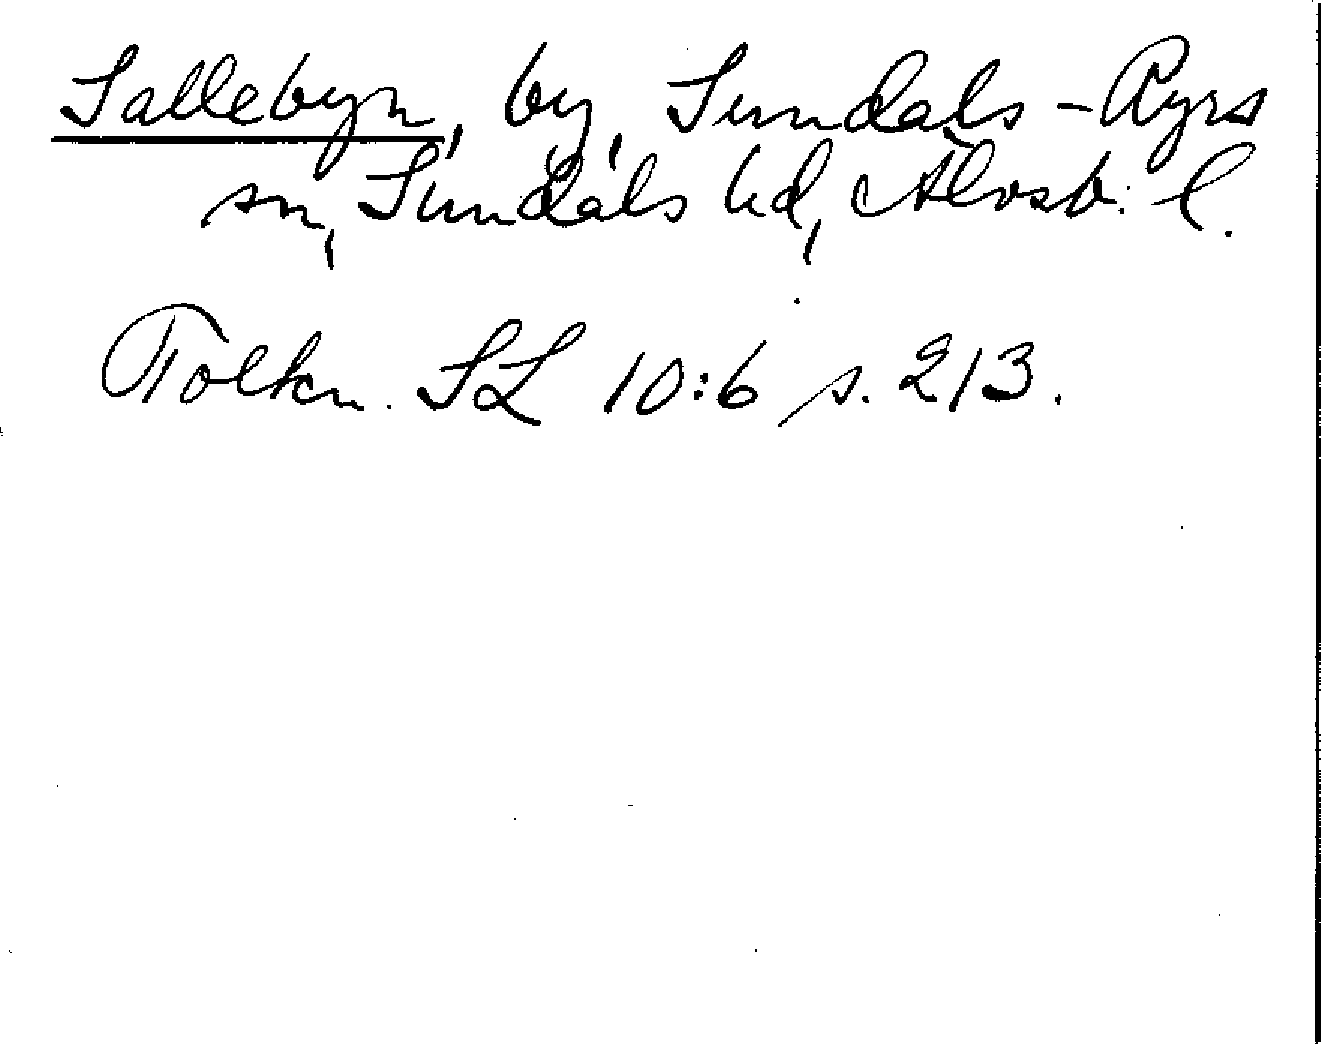 Sallebyn, by, Sundals-Ryrs
sn, Sundals hd, Älvsb. l.
Tolkn. SL 10:6 s. 213.